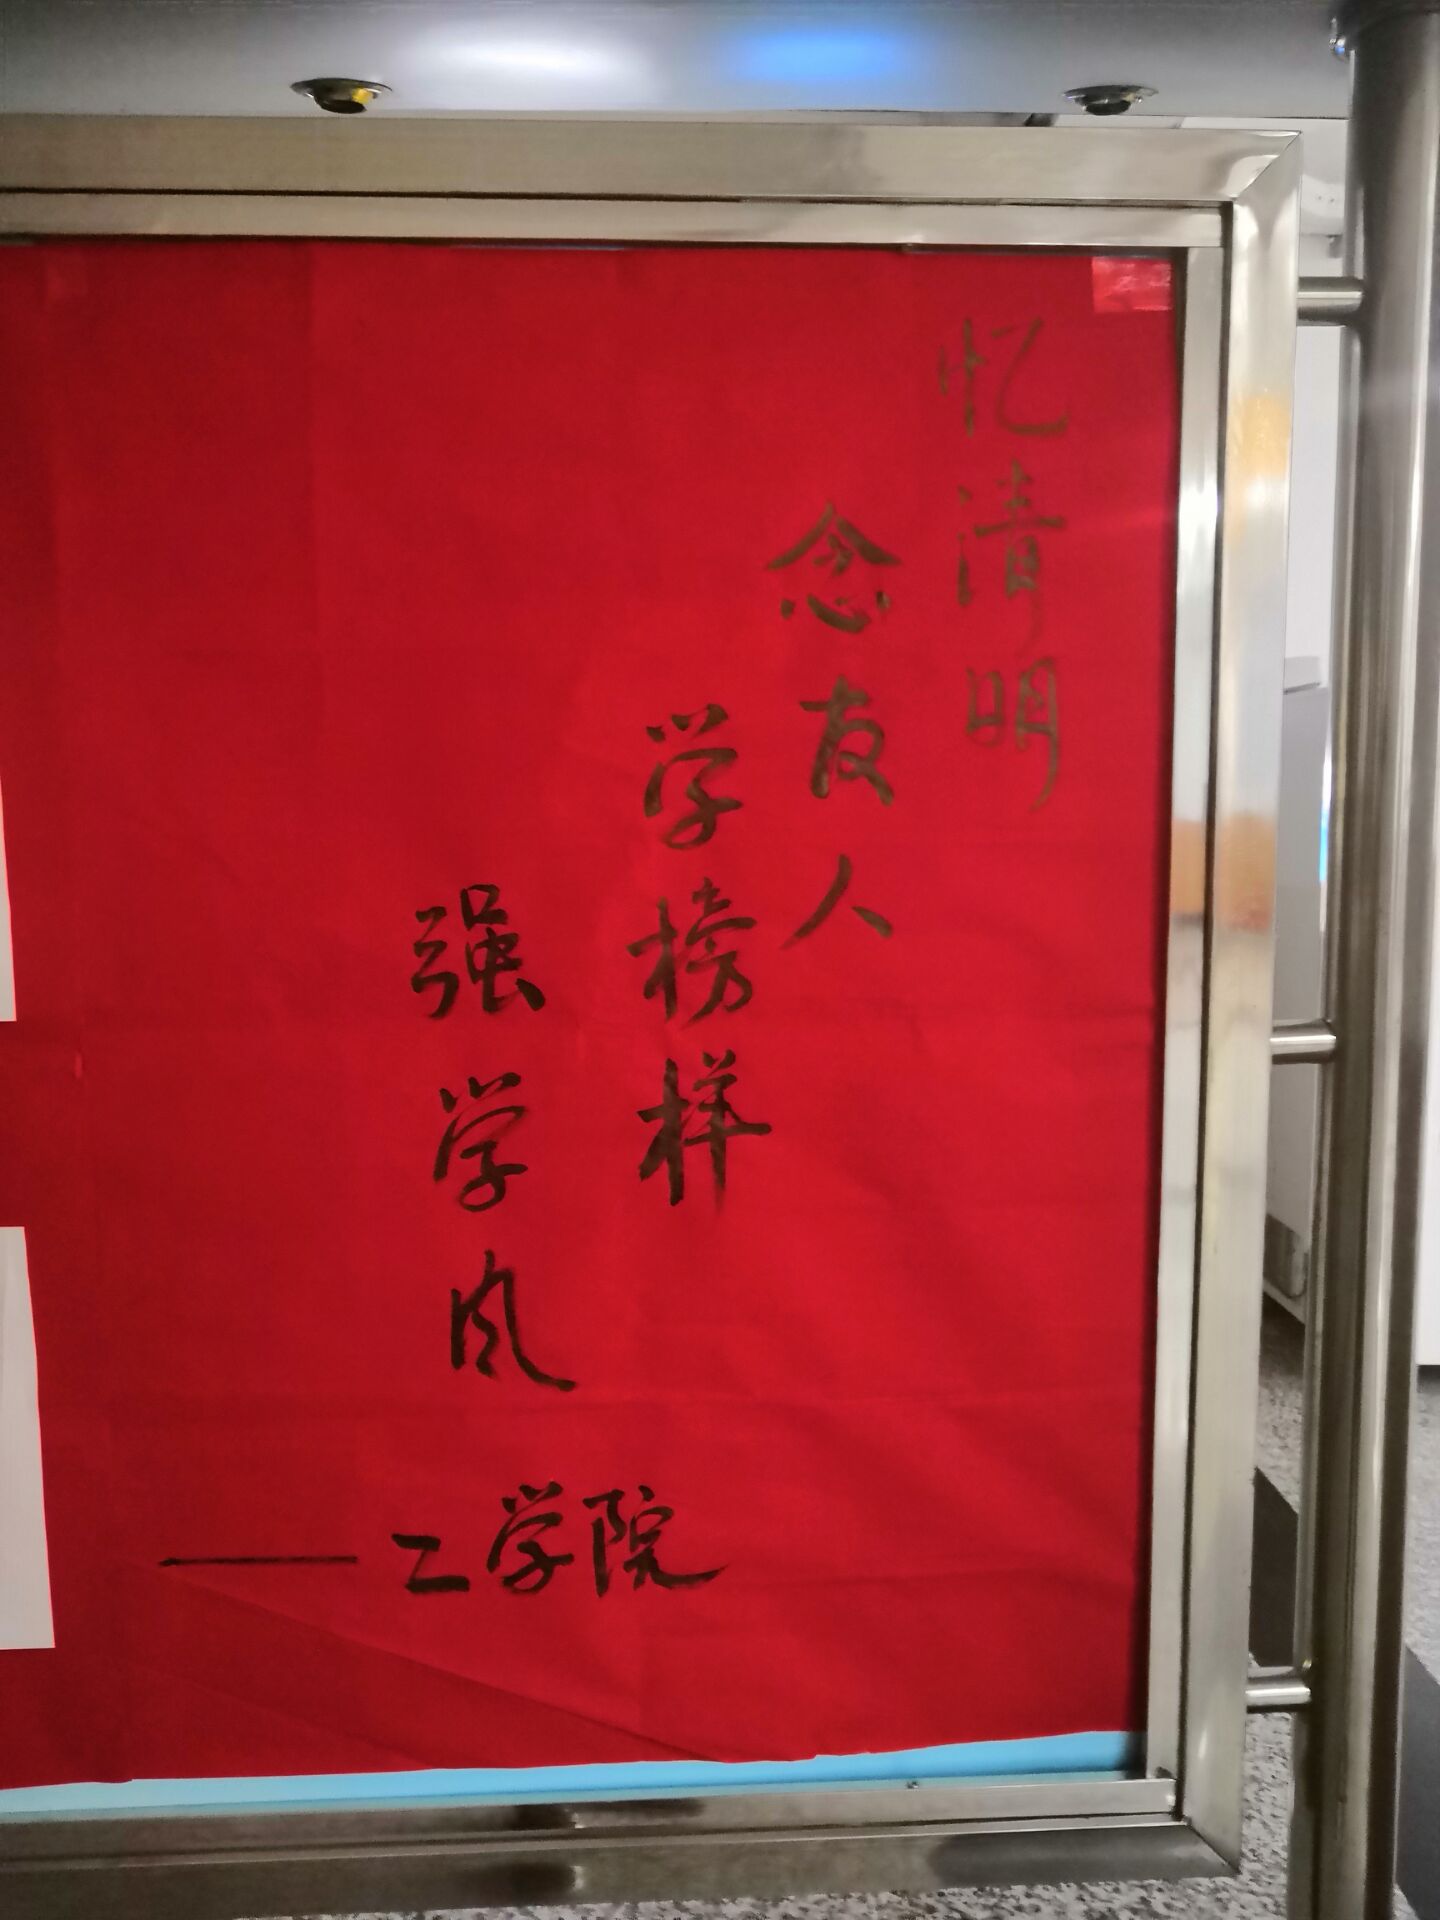 忆清明
念友人
学榜样
强学风
——工学院